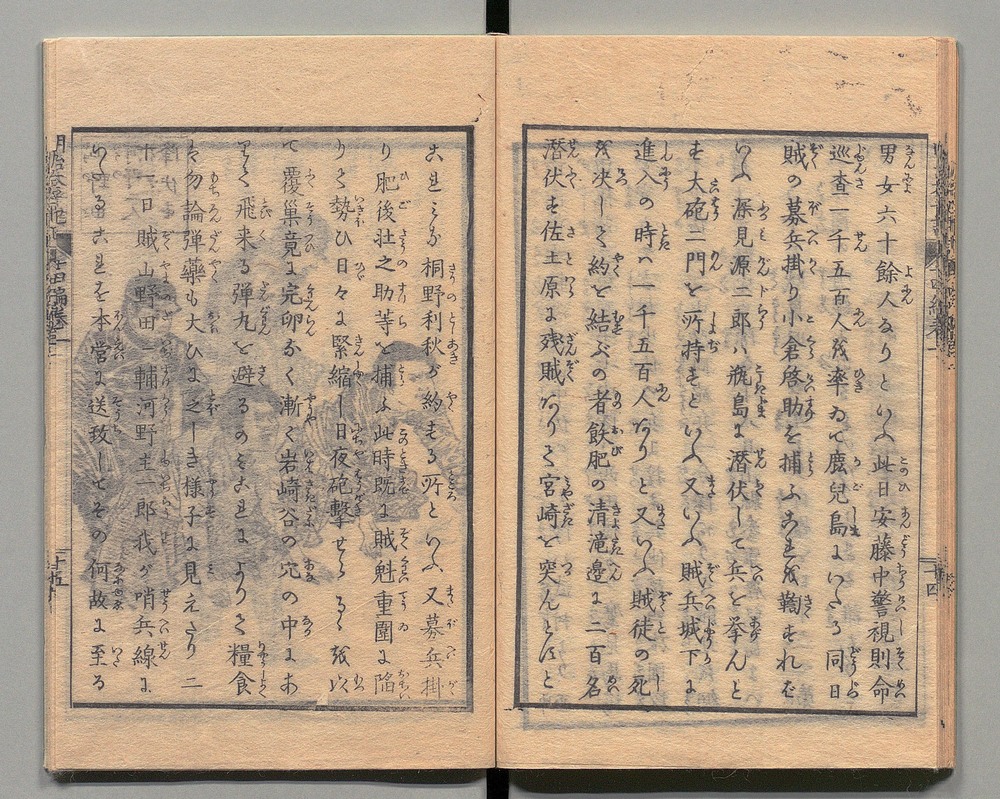 男女六十餘人なりといふ此日安藤中警視則命
巡査一千五百人を率ゐて鹿兒島にいたる同日
賊の募兵掛り小倉啓助を捕ふこれを鞫すれば
いふ源見源二郎ハ瓶島に潜伏して兵を挙んと
す大砲二門を所持すといふ又いふ賊兵城下に
進入の時ハ一千五百人なりと又いふ賊徒の死
を决して約を結ぶの者飫肥の清滝邉に二百名
潜伏す佐土原に残賊ありて宮崎を突んとほと
これみな桐野利秋が約する所といふ又募兵掛
り肥後壮之助等を捕ふ此時既に賊魁重圍に陥
りて勢ひ日々に緊縮し日夜砲撃せらるゝを以
て覆巢竟に完卵なく漸く岩崎谷の穴の中にあ
りて飛来る弾丸を避るのみこれによりて糧食
ハ勿論弾藥も大ひに之しき様子に見えたり二
十一日賊山野田一輔河野主一郎我が哨兵線に
いたるこれを本營に送致してその何故に至る